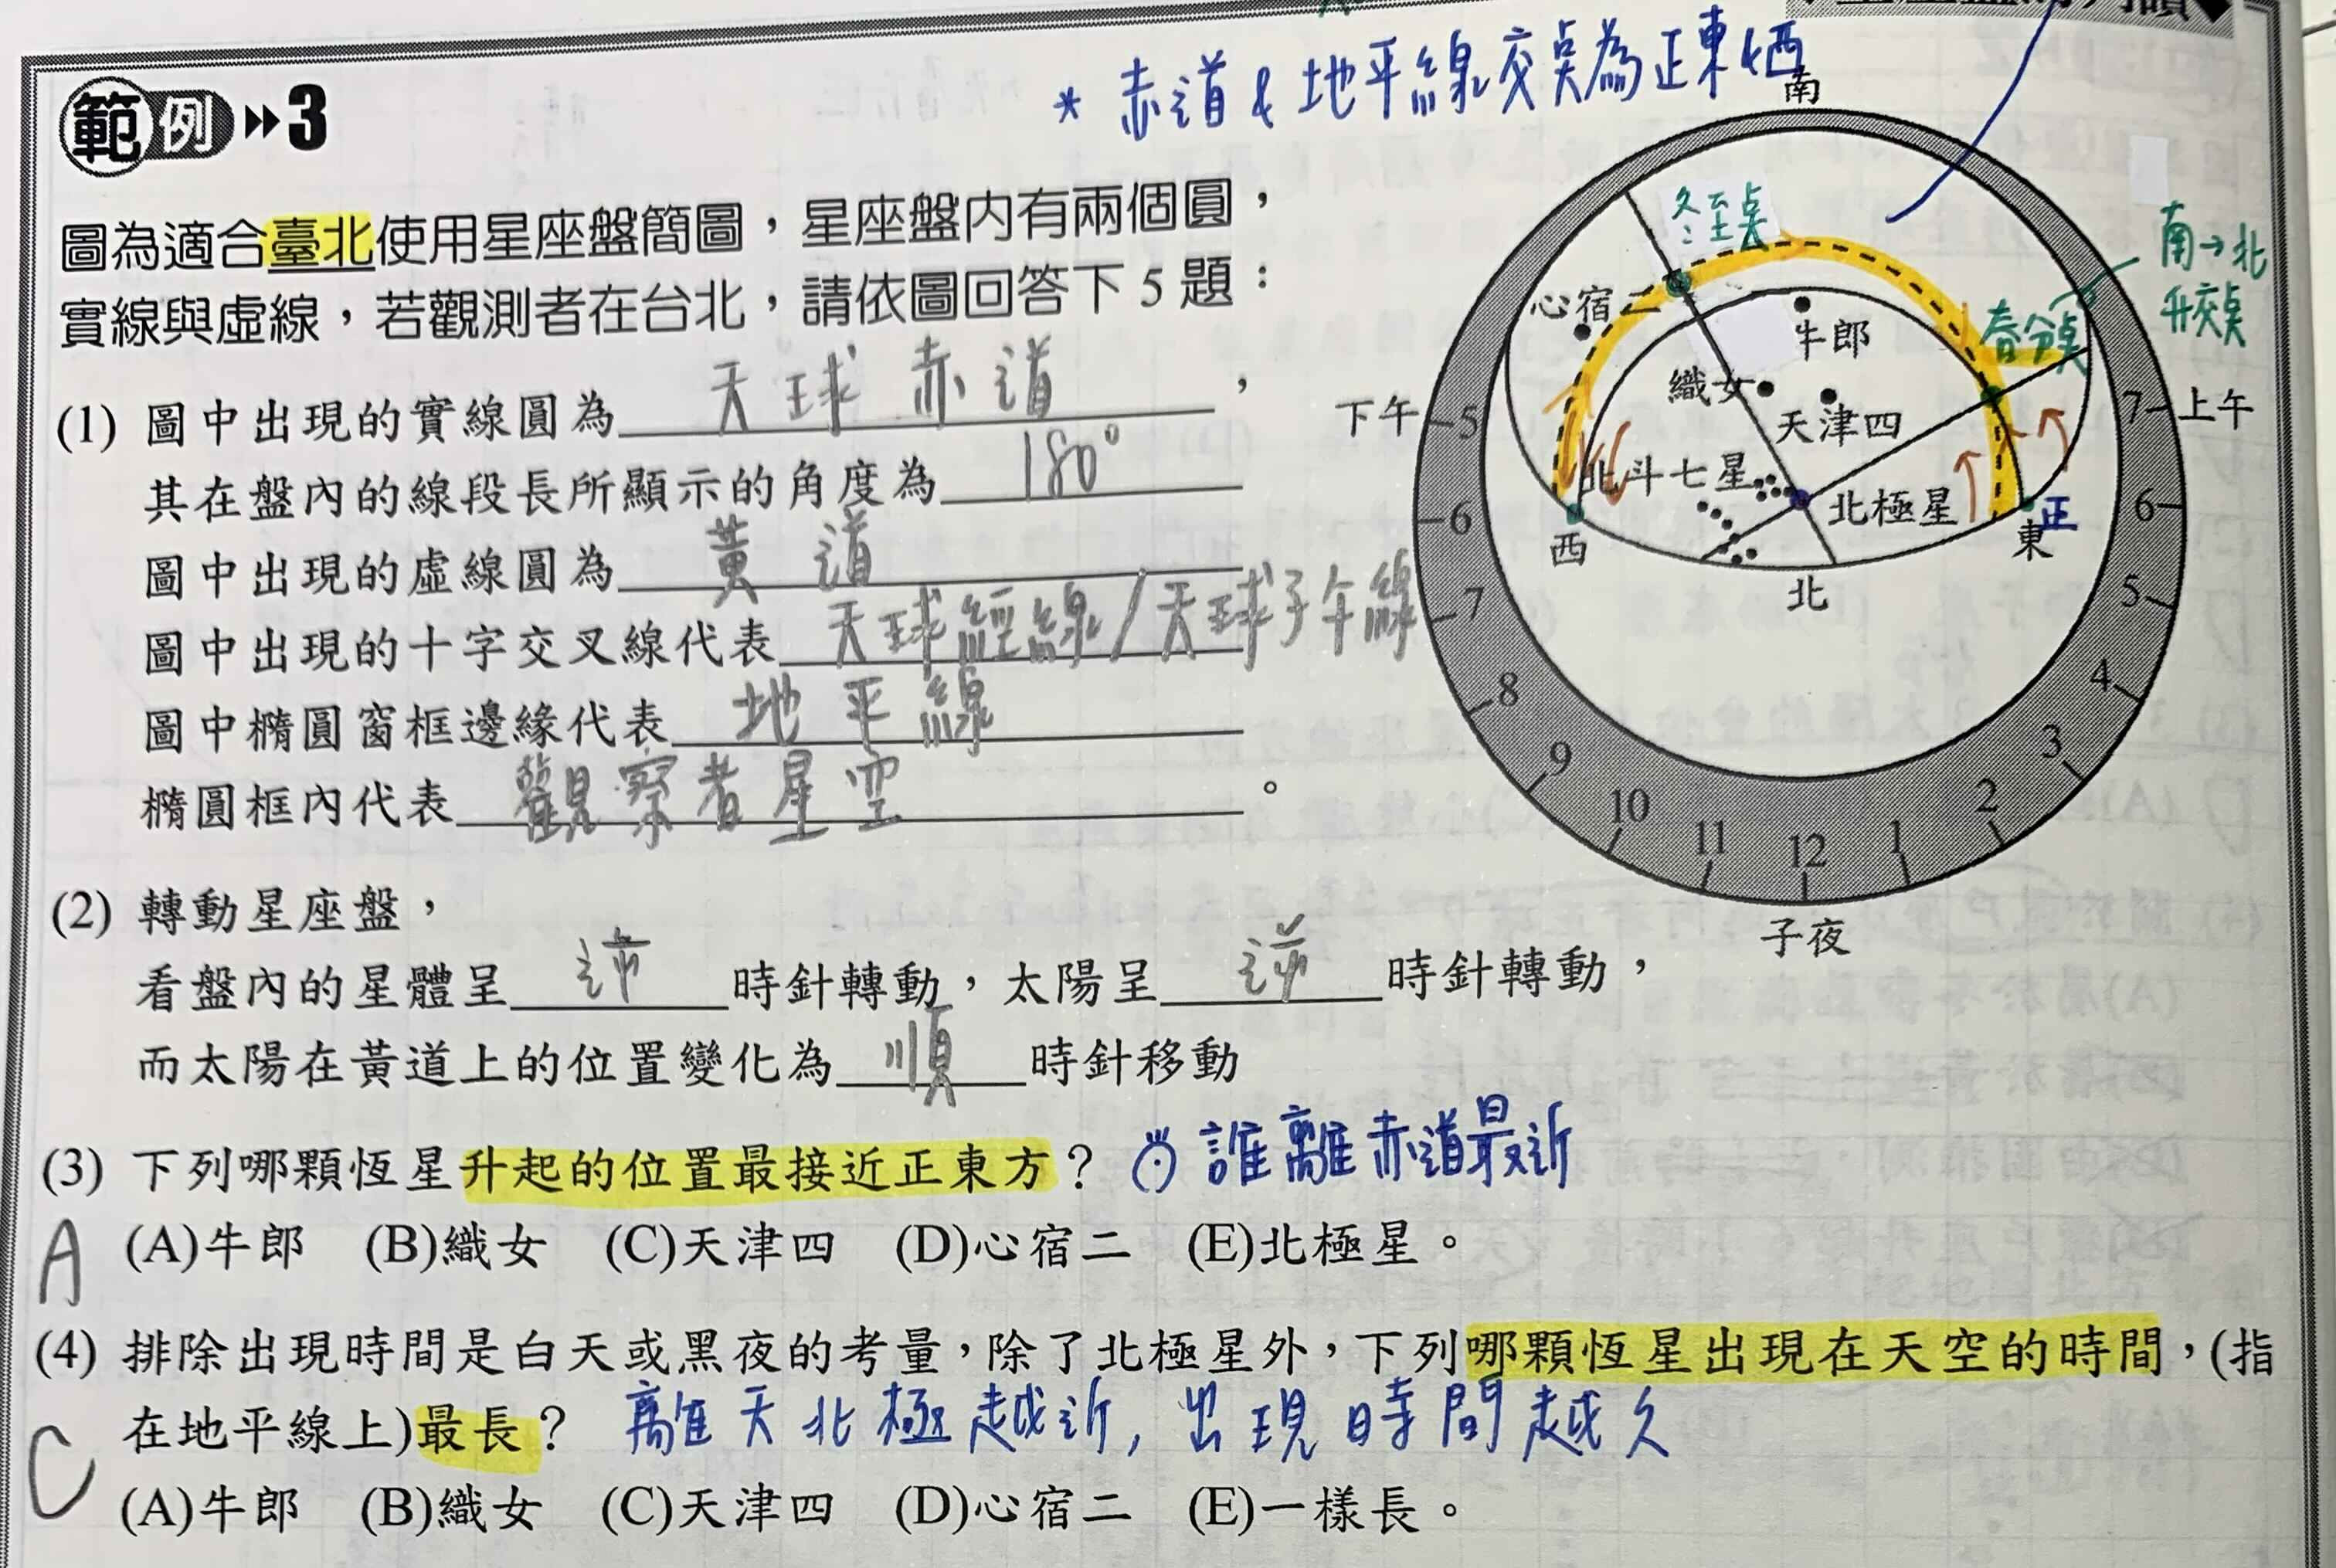 * 赤道 & 地平線交點為正東 & 西
範例 ▸▸ 3
圖為適合臺北使用星座盤簡圖，星座盤內有兩個圓，
實線與虛線，若觀測者在台北，請依圖回答下 5 題：
(1) 圖中出現的實線圓為 天球赤道，
其在盤內的線段長所顯示的角度為 180°
圖中出現的虛線圓為 黃道
圖中出現的十字交叉線代表 天球經線/天球子午線
圖中橢圓窗框邊緣代表 地平線
橢圓框內代表 觀察者星空。
南
冬至點
南→北
升交點
心宿二
牛郎
春分點
織女
天津四
下午 5
7 上午
北斗七星
北極星
6
6
西
正
東
北
7
5
8
4
9
3
10
2
11
12
1
子夜
(2) 轉動星座盤，
看盤內的星體呈 逆 時針轉動，太陽呈 逆 時針轉動，
而太陽在黃道上的位置變化為 順 時針移動
(3) 下列哪顆恆星升起的位置最接近正東方？ 誰離赤道最近
A (A)牛郎 (B)織女 (C)天津四 (D)心宿二 (E)北極星。
(4) 排除出現時間是白天或黑夜的考量，除了北極星外，下列哪顆恆星出現在天空的時間，(指
在地平線上)最長？ 離天北極越近，出現時間越久
C (A)牛郎 (B)織女 (C)天津四 (D)心宿二 (E)一樣長。